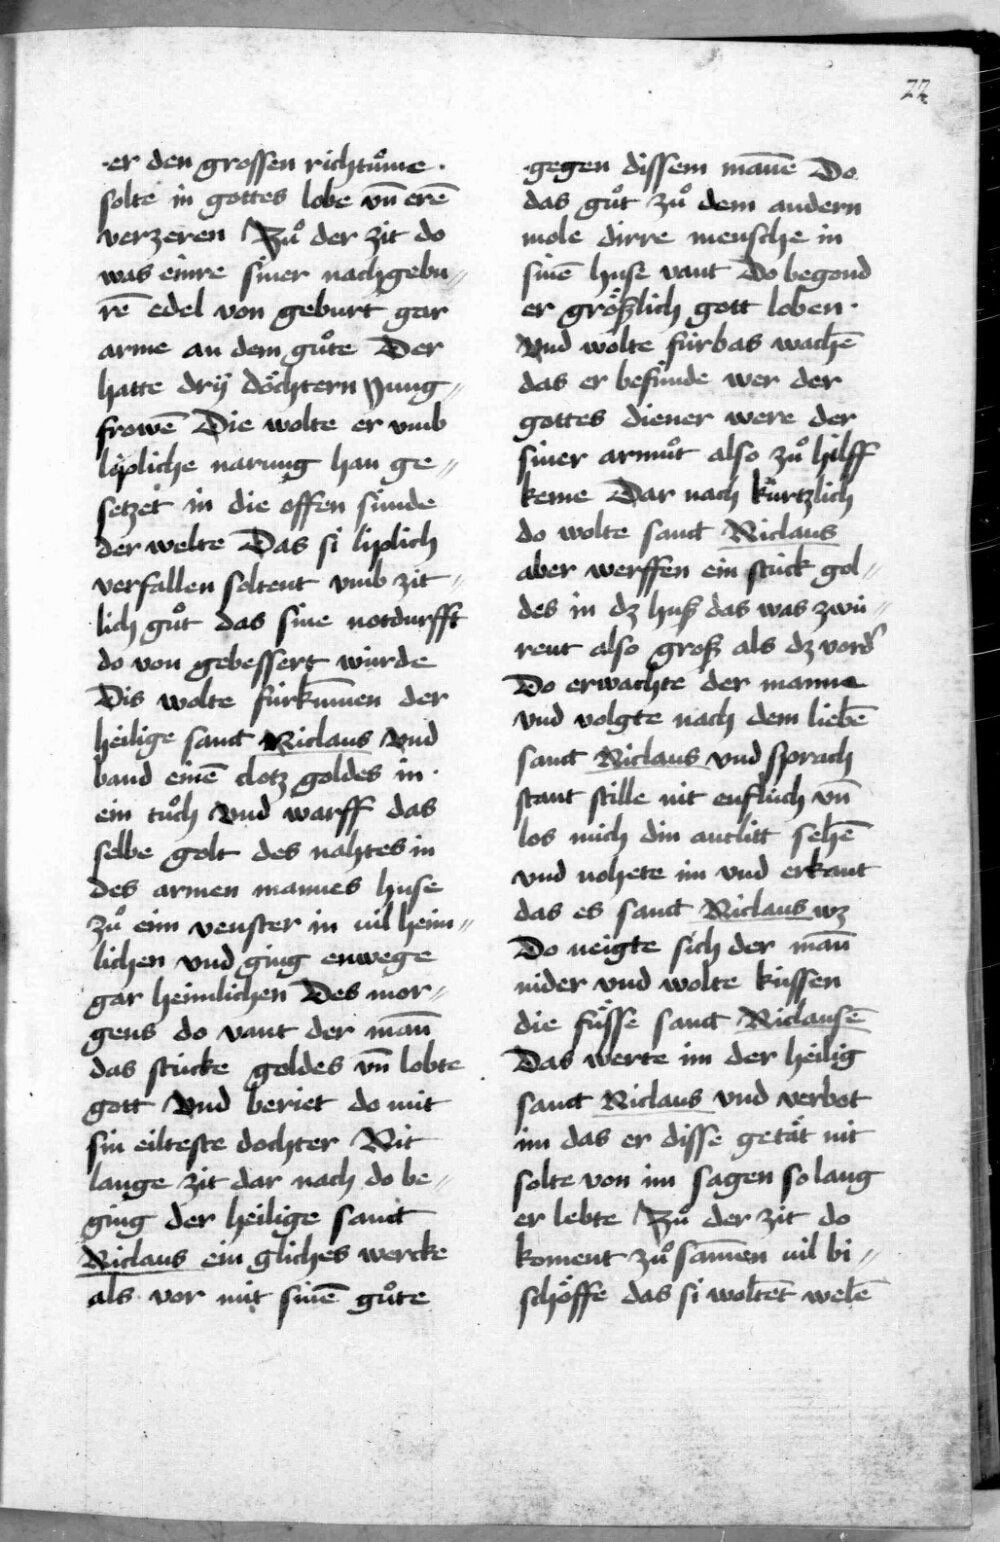 22
er den grossen richtuͦme ·
solte in gottes lobe vn̄ erē
verzeren Zuͦ der zit do
was einre siner nachgebu〃
rē edel von geburt gar
arme an dem guͦte Der
hatte drÿ döchtern Jung〃
frowē Die wolte er vmb
lipliche narung han ge〃
setzet in die offen sünde
der welte Das si liplich
verfallen soltent vmb zit〃
lich guͦt das sine notdurfft
do von gebessert würde
Dis wolte fürkūmen der
heilige sanct Niclaus Vnd
band einē clotz goldes in ·
ein tuͦch Vnd warff das
selbe golt des nahtes in
des armen mannes huse
zuͦ eim venster in vil heim〃
lichen vnd ging enwege
gar heimlichen Des mor〃
gens do vant der man̄
das stücke goldes vn̄ lobte
gott Vnd beriet do mit
sin eilteste dochter Nit
lange zit dar nach do be〃
ging der heilige sanct
Niclaus ein gliches wercke
als vor mit sinē guͦte
gegen dissem mannē Do
das guͦt zuͦ dem andern
mole dirre mensche in
sinē huse vant Do begond
er größlich gott loben ·
Vnd wolte fürbas wachē
das er befünde wer der
gottes diener were der
siner armuͦt also zuͦ hilff
keme Dar nach kürtzlich
do wolte sanct Niclaus
aber werffen ein stück gol〃
des in dz huß das was zwü〃
rent also groß als dz vord'
Do erwachte der manne
vnd volgte nach dem liebē
sanct Niclaus vnd sprach
stant stille nit enflüch vn̄
los mich din antlitt sehē
vnd nohete im vnd erkant
das es sanct Niclaus wz
Do neigte sich der man̄
nider vnd wolte küssen
die füsse sanct Niclausē
Das werte im der heilig
sanct Niclaus vnd verbot
im das er disse getät nit
solte von im sagen so lang
er lebte Zuͦ der zit do
koment zuͦ sam̄en vil bi〃
schöffe das si woltēt welē